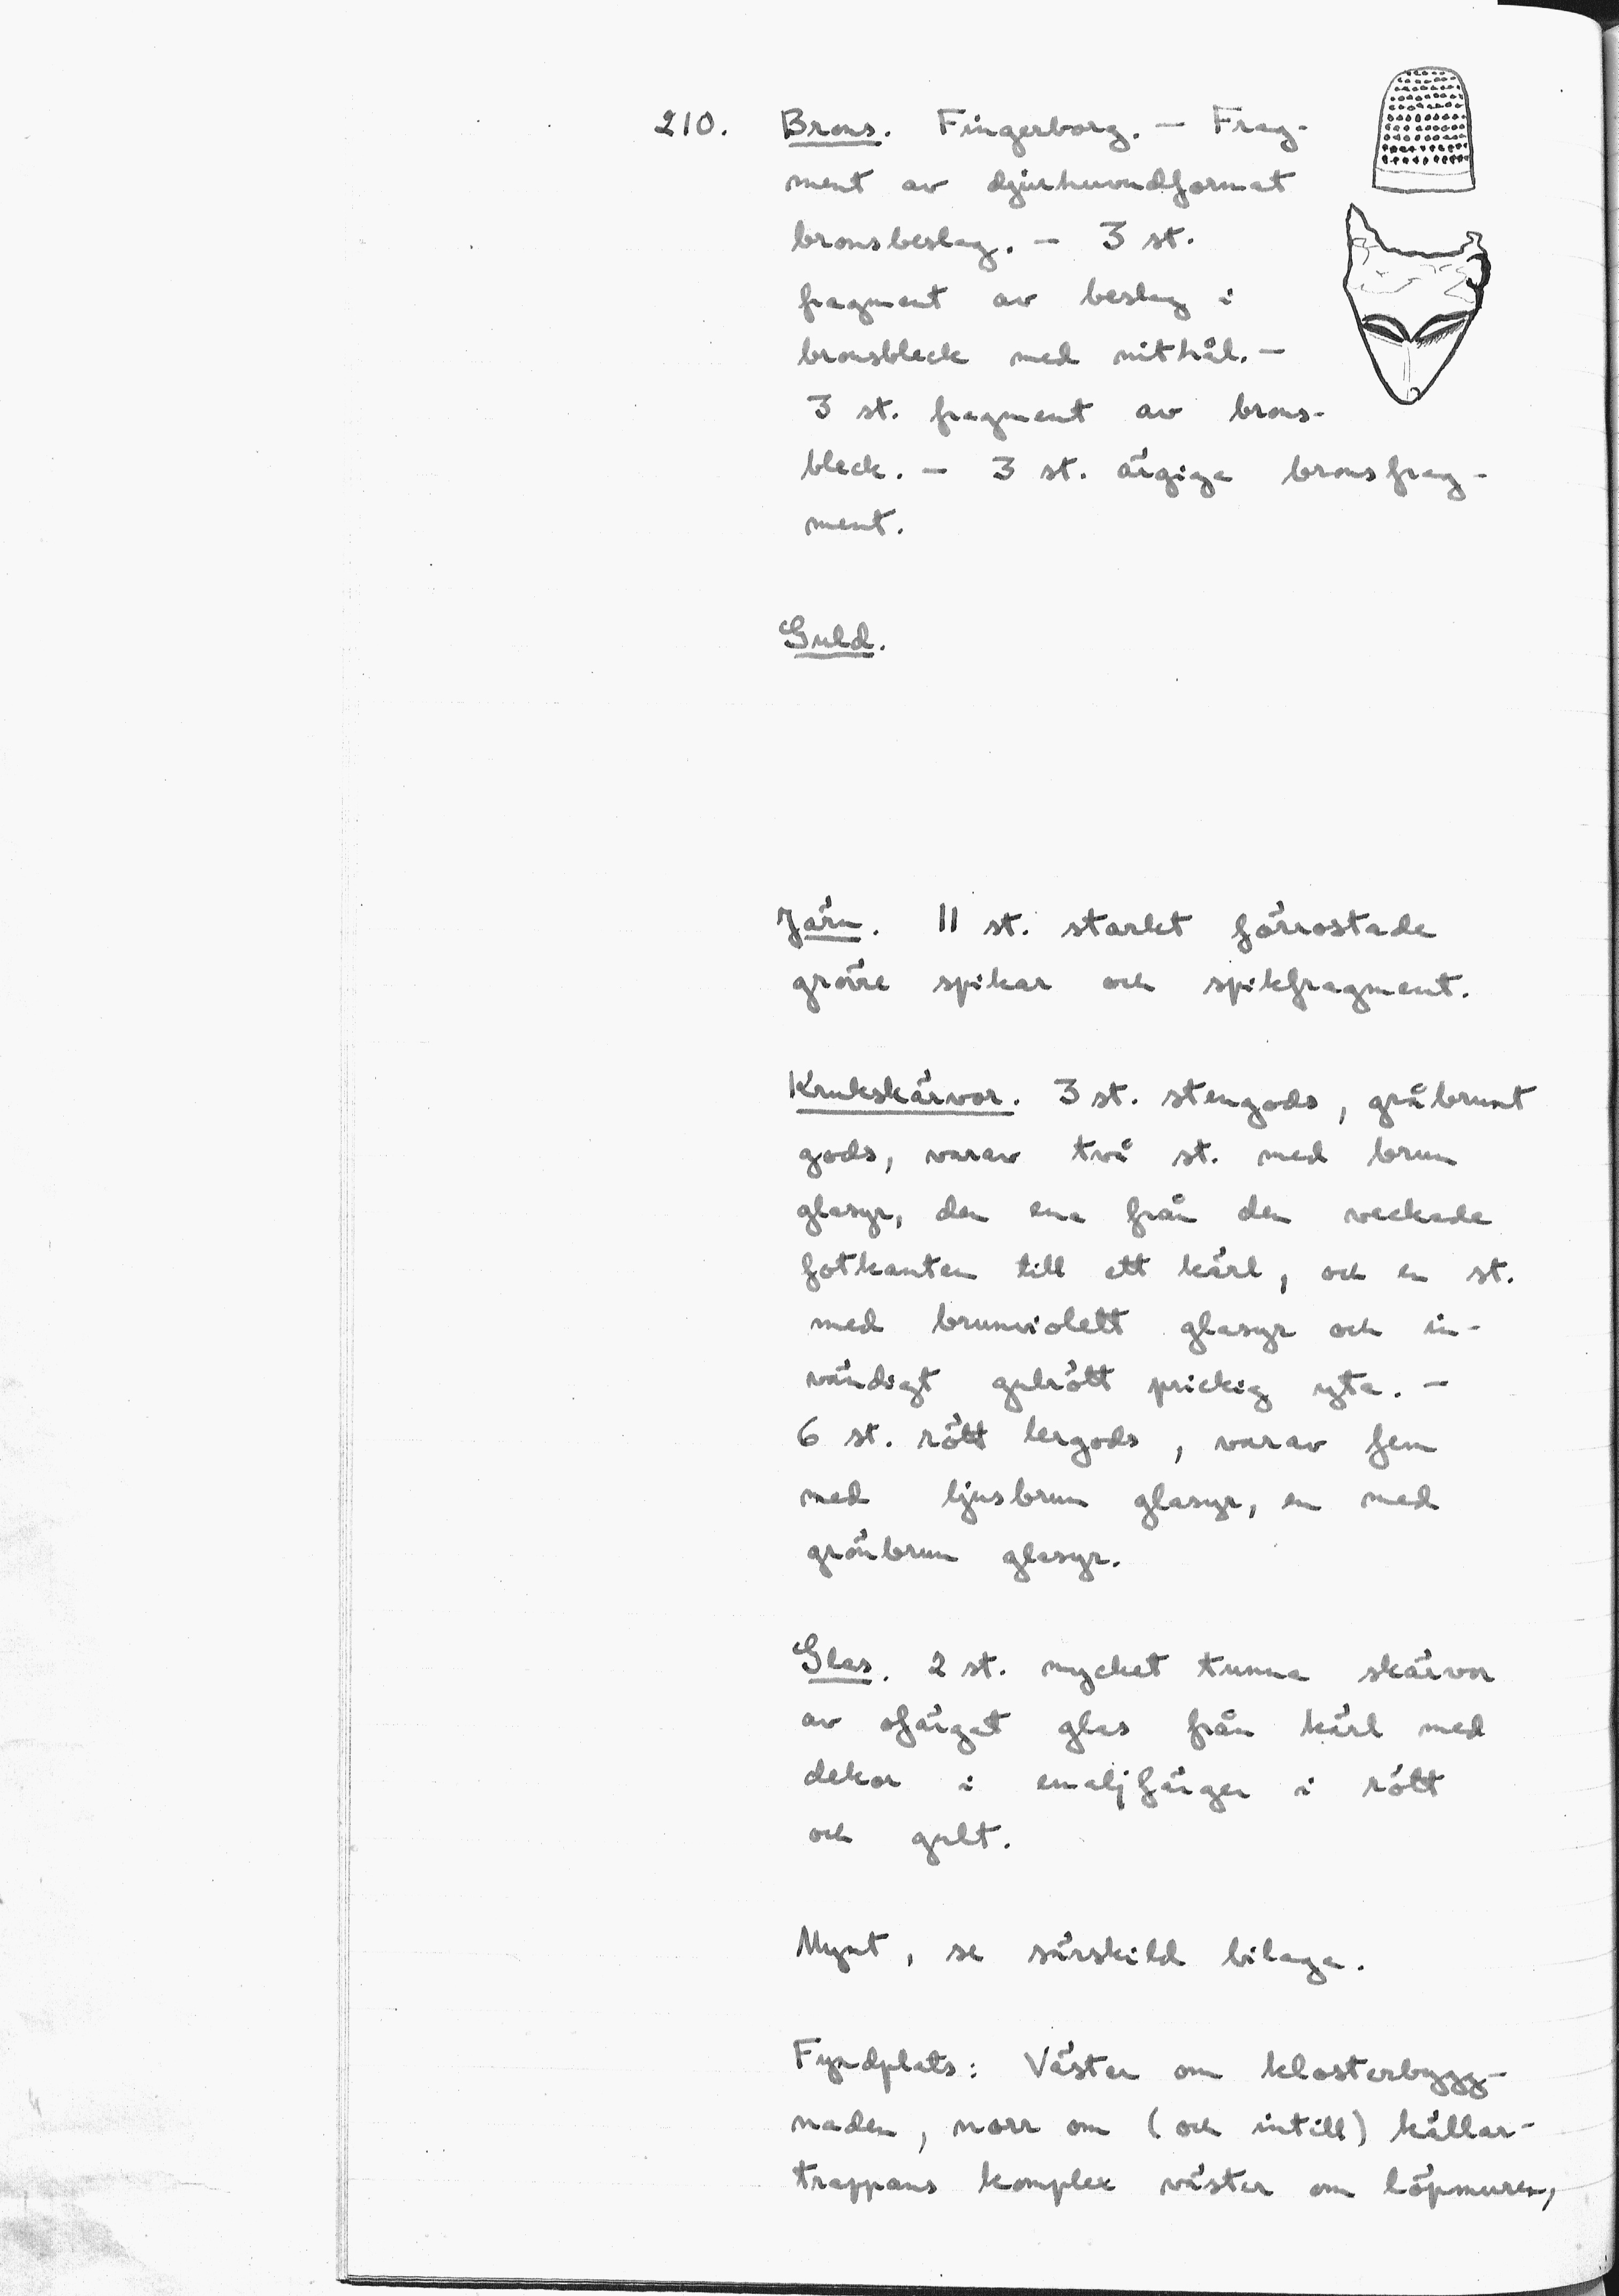 210. Brons. Fingerborg. — Frag-
ment av djurhuvudformat
bronsbeslag. — 3 st.
fragment av beslag i
bronsbleck med nithål. —
3 st. fragment av brons-
bleck. — 3 st. ärgiga bronsfrag-
ment.
Guld.
Järn. 11 st. starkt förrostade
grövre spikar och spikfragment.
Krukskärvor. 3 st. stengods, gråbrunt
gods, varav två st. med brun
glasyr, den ena från den veckade
fotkanten till ett kärl, och en st.
med brunviolett glasyr och in-
vändigt gulrött prickig yta. —
6 st. rött lergods, varav fem
med ljusbrun glasyr, en med
grönbrun glasyr.
Glas. 2 st. mycket tunna skärvor
av ofärgat glas från kärl med
dekor i emaljfärger i rött
och gult.
Mynt, se särskild bilaga.
Fyndplats: Väster om klosterbygg-
naden, norr om (och intill) källar-
trappans komplex väster om löpmuren,